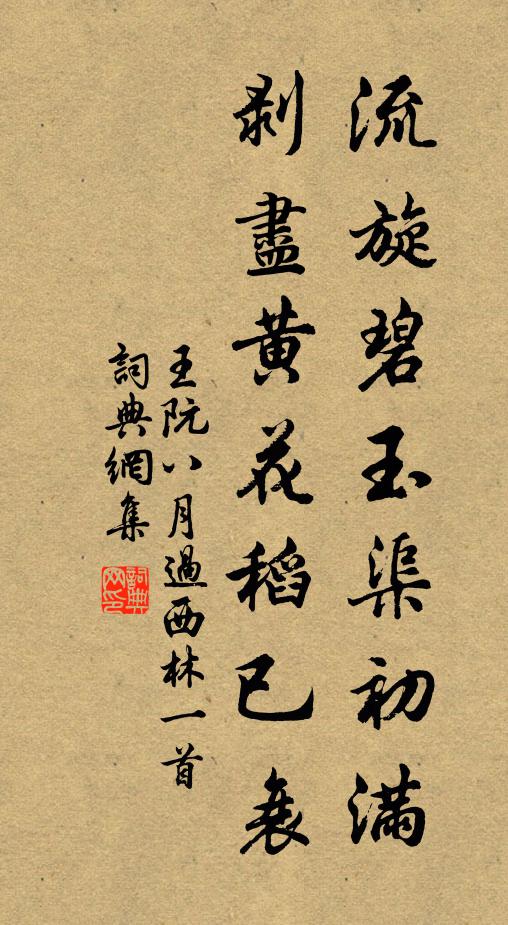 流旋碧玉渠初滿
剥盡黄花稻已衰
王阮八月過西林一首
詞典網集
詞典网印